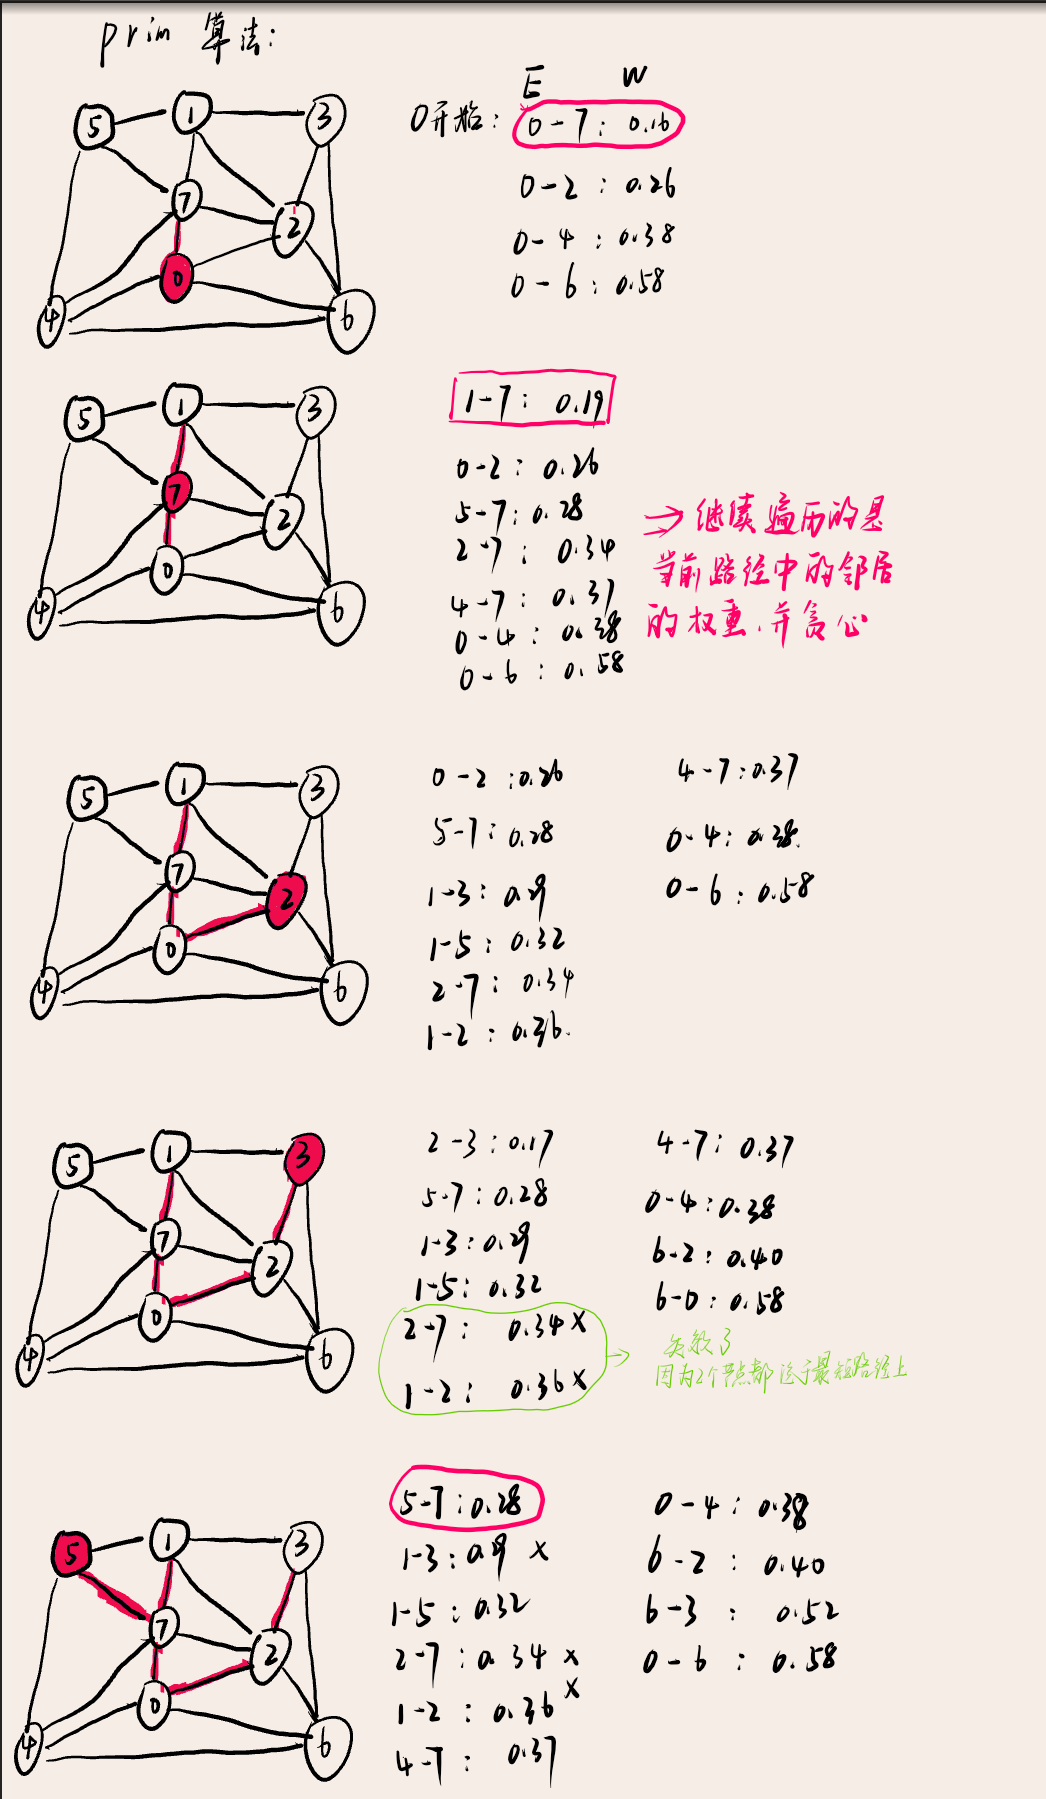 prim 算法:
E W
0开始: 0-7: 0.16
0-2: 0.26
0-4: 0.38
0-6: 0.58
5 1 3
7 2
0
4 6
1-7: 0.19
0-2: 0.26
5-7: 0.28
2-7: 0.34
4-7: 0.37
0-4: 0.38
0-6: 0.58
=> 继续遍历的是
当前路径中的邻居
的权重,并贪心
5 1 3
7 2
0
4 6
0-2: 0.26
5-7: 0.28
1-3: 0.29
1-5: 0.32
2-7: 0.34
1-2: 0.36.
4-7: 0.37
0-4: 0.38.
0-6: 0.58
5 1 3
7 2
0
4 6
2-3: 0.17
5-7: 0.28
1-3: 0.29
1-5: 0.32
2-7: 0.34 x
1-2: 0.36 x
4-7: 0.37
0-4: 0.38
6-2: 0.40
6-0: 0.58
失效了
因为2个节点都位于最短路径上
5 1 3
7 2
0
4 6
5-7: 0.28
1-3: 0.29 x
1-5: 0.32
2-7: 0.34 x
1-2: 0.36 x
4-7: 0.37
0-4: 0.38
6-2: 0.40
6-3: 0.52
0-6: 0.58
5 1 3
7 2
0
4 6